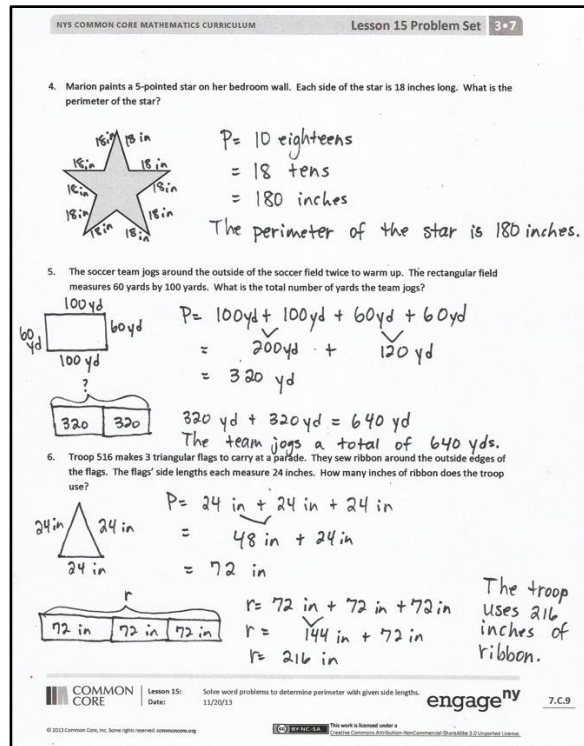 NYS COMMON CORE MATHEMATICS CURRICULUM
Lesson 15 Problem Set 3•7
4. Marion paints a 5-pointed star on her bedroom wall. Each side of the star is 18 inches long. What is the
perimeter of the star?
18in 18 in
18in 18 in
18in 18in
18in 18in
18in 18in
P= 10 eighteens
= 18 tens
= 180 inches
The perimeter of the star is 180 inches.
5. The soccer team jogs around the outside of the soccer field twice to warm up. The rectangular field
measures 60 yards by 100 yards. What is the total number of yards the team jogs?
100yd
60 yd
60yd
100 yd
P= 100yd + 100yd + 60yd + 60yd
= 200yd + 120 yd
= 320 yd
?
320 320
320 yd + 320yd = 640 yd
The team jogs a total of 640 yds.
6. Troop 516 makes 3 triangular flags to carry at a parade. They sew ribbon around the outside edges of
the flags. The flags' side lengths each measure 24 inches. How many inches of ribbon does the troop
use?
24in 24 in
24 in
P= 24 in + 24 in + 24 in
= 48 in + 24in
= 72 in
r
72 in 72 in 72 in
r= 72 in + 72 in + 72in
r= 144 in + 72 in
r= 216 in
The troop
uses 216
inches of
ribbon.
COMMON
CORE
Lesson 15:
Date:
Solve word problems to determine perimeter with given side lengths.
11/20/13
engage ny
7.C.9
© 2013 Common Core, Inc. Some rights reserved. commoncore.org
CC BY-NC-SA
This work is licensed under a
Creative Commons Attribution-NonCommercial-ShareAlike 3.0 Unported License.